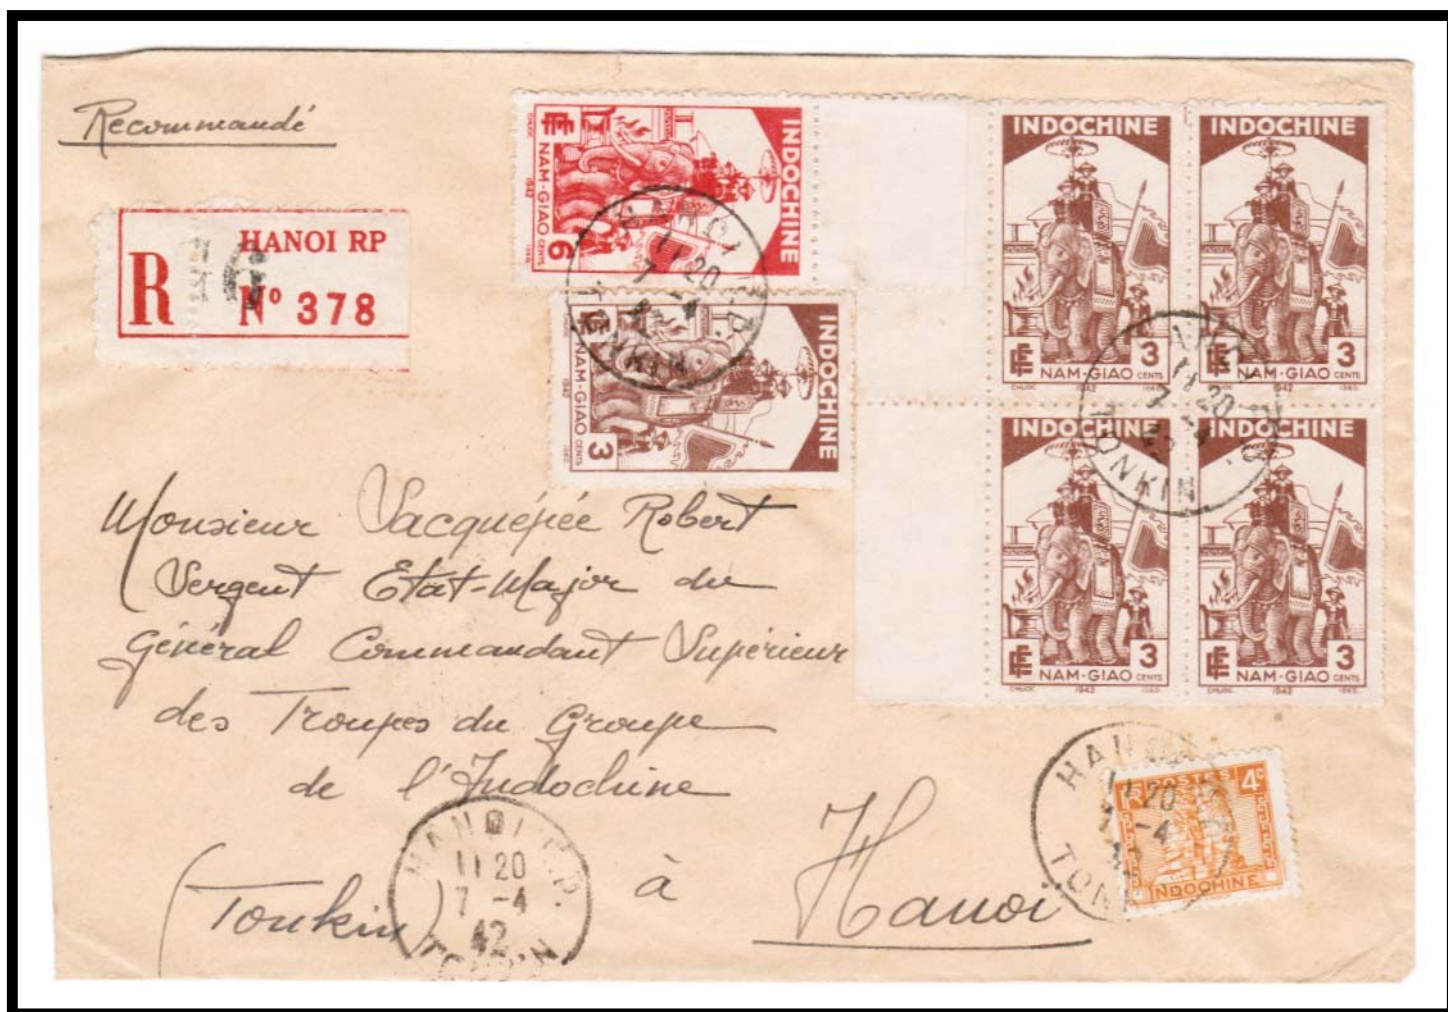 Recommandé
R
HANOI RP
Nº 378
INDOCHINE
NAM-GIAO
6 CENTS
1942
INDOCHINE
NAM-GIAO
3 CENTS
1942
INDOCHINE
3
NAM-GIAO CENTS
CHUOC 1942
INDOCHINE
3
NAM-GIAO CENTS
CHUOC 1942
INDOCHINE
3
NAM-GIAO CENTS
CHUOC 1942
INDOCHINE
3
NAM-GIAO CENTS
CHUOC 1942
HANOI R.P.
11 20
7 -4
TONKIN
HANOI R.P.
11 20
7 -4
TONKIN
Monsieur Sacquépée Robert
Sergent Etat-Major du
Général Commandant Supérieur
des Troupes du Groupe
de l'Indochine
(Tonkin) à Hanoï
HANOI R.P.
11 20
7 -4
42
TONKIN
HANOI
11 20
7 -4
TONKIN
POSTES
4c
INDOCHINE